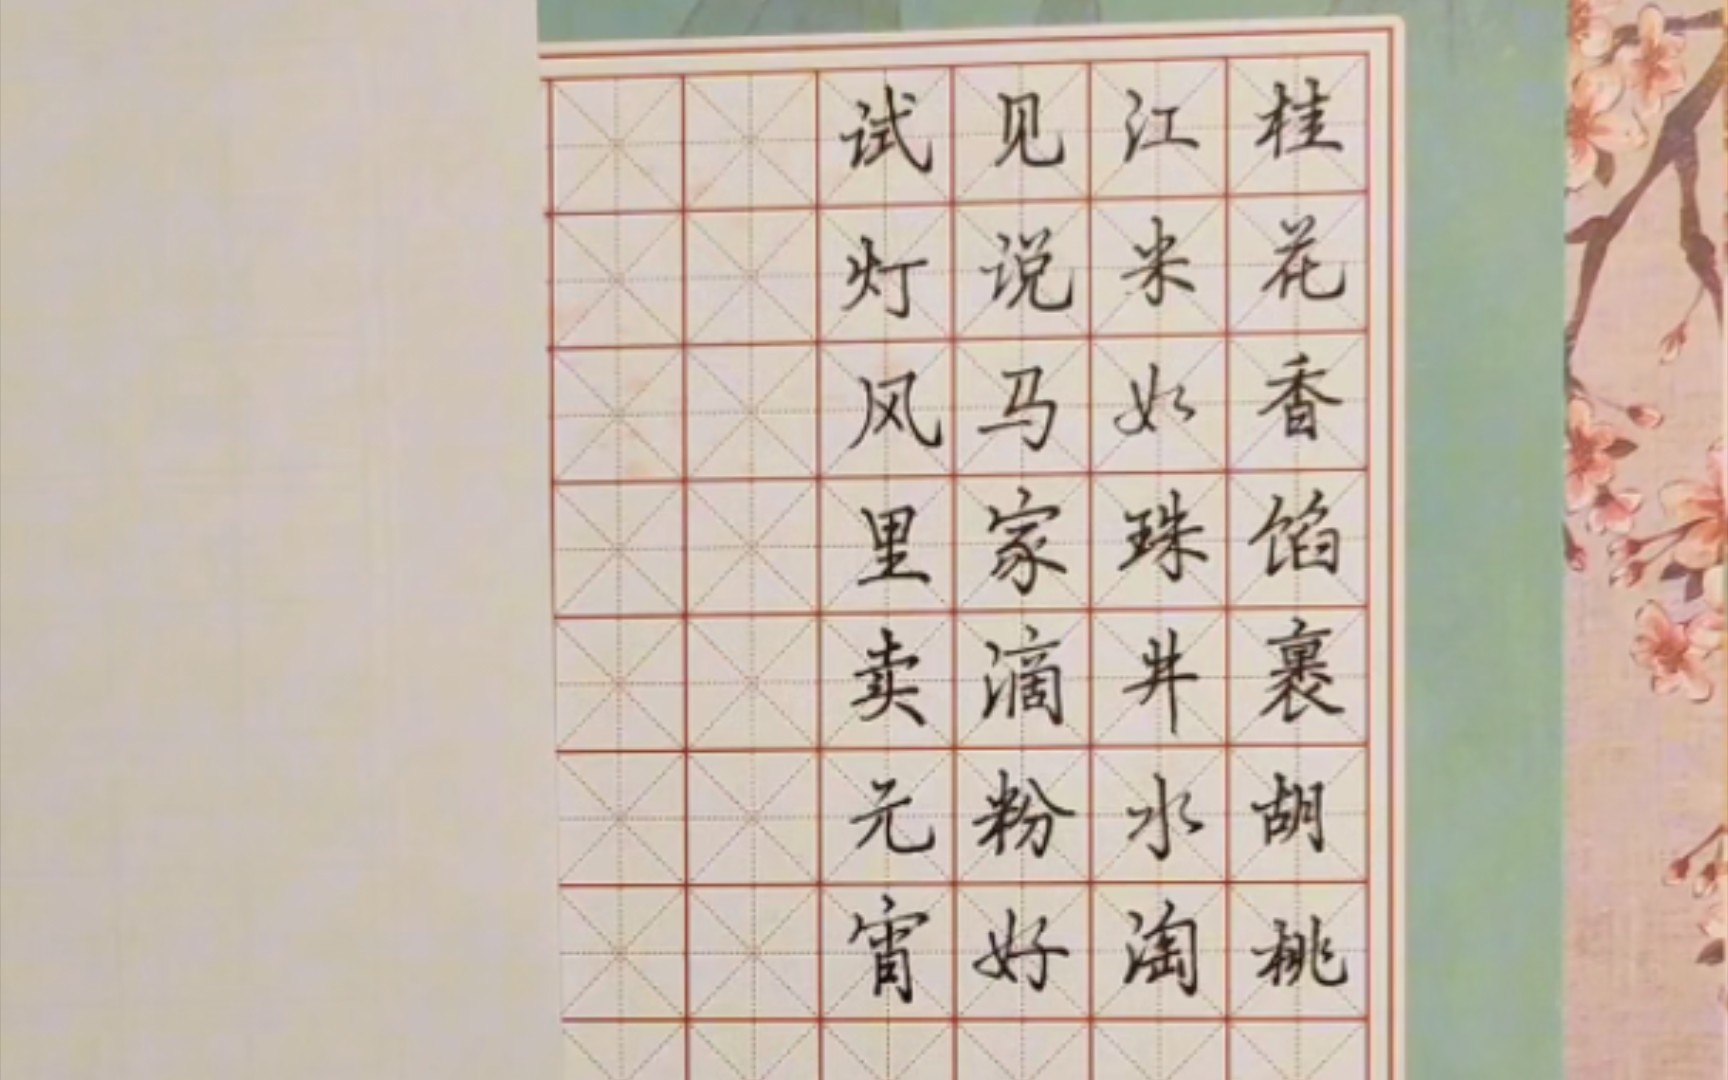 桂花香馅裹胡桃
江米如珠井水淘
见说马家滴粉好
试灯风里卖元宵